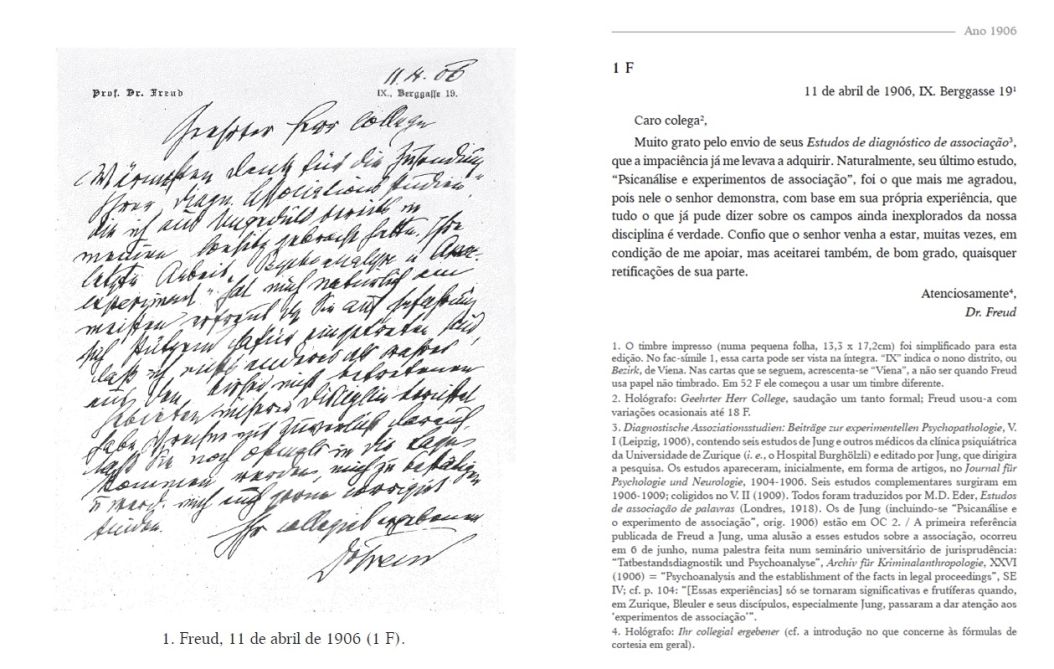 11. 4. 06
Prof. Dr. Freud
IX., Berggasse 19.
Geehrter Herr College
Wärmsten Dank für die Zusendung
Ihrer Diagn. Associationsstudien,
die ich aus Ungeduld bereits in
meinen Besitz gebracht hatte. Ihre
letzte Arbeit „Psychoanalyse u Assoc.
experiment" hat mich natürlich am
meisten erfreut, da Sie auf Erfahrung
sich stützend dafür eingetreten sind,
daß ich nichts anderes als wahres
aus den bisher nicht betretenen
Gebieten unserer Disciplin berichtet
habe. mit Zuversicht darauf,
daß Sie noch oftmals in die Lage
kommen werden, mich zu bestätigen
u werde mich auch gerne corrigirt
finden.
Ihr collegial ergebener
Dr Freud
1. Freud, 11 de abril de 1906 (1 F).
Ano 1906
1 F
11 de abril de 1906, IX. Berggasse 19¹
Caro colega²,
Muito grato pelo envio de seus Estudos de diagnóstico de associação³,
que a impaciência já me levava a adquirir. Naturalmente, seu último estudo,
“Psicanálise e experimentos de associação”, foi o que mais me agradou,
pois nele o senhor demonstra, com base em sua própria experiência, que
tudo o que já pude dizer sobre os campos ainda inexplorados da nossa
disciplina é verdade. Confio que o senhor venha a estar, muitas vezes, em
condição de me apoiar, mas aceitarei também, de bom grado, quaisquer
retificações de sua parte.
Atenciosamente⁴,
Dr. Freud
1. O timbre impresso (numa pequena folha, 13,3 x 17,2cm) foi simplificado para esta
edição. No fac-símile 1, essa carta pode ser vista na íntegra. “IX” indica o nono distrito, ou
Bezirk, de Viena. Nas cartas que se seguem, acrescenta-se “Viena”, a não ser quando Freud
usa papel não timbrado. Em 52 F ele começou a usar um timbre diferente.
2. Hológrafo: Geehrter Herr College, saudação um tanto formal; Freud usou-a com
variações ocasionais até 18 F.
3. Diagnostische Assoziationsstudien: Beiträge zur experimentellen Psychopathologie, V.
I (Leipzig, 1906), contendo seis estudos de Jung e outros médicos da clínica psiquiátrica
da Universidade de Zurique (i. e., o Hospital Burghölzli) e editado por Jung, que dirigira
a pesquisa. Os estudos apareceram, inicialmente, em forma de artigos, no Journal für
Psychologie und Neurologie, 1904-1906. Seis estudos complementares surgiram em
1906-1909; coligidos no V. II (2009). Todos foram traduzidos por M.D. Eder, Estudos
de associação de palavras (Londres, 1918). Os de Jung (incluindo-se “Psicanálise e
o experimento de associação”, orig. 1906) estão em OC 2. / A primeira referência
publicada de Freud a Jung, uma alusão a esses estudos sobre a associação, ocorreu
em 6 de junho, numa palestra feita num seminário universitário de jurisprudência:
“Tatbestandsdiagnostik und Psychoanalyse”, Archiv für Kriminalanthropologie, XXVI
(1906) = “Psychoanalysis and the establishment of the facts in legal proceedings”, SE
IV; cf. p. 104: “[Essas experiências] só se tornaram significativas e frutíferas quando,
em Zurique, Bleuler e seus discípulos, especialmente Jung, passaram a dar atenção aos
‘experimentos de associação’”.
4. Hológrafo: Ihr collegial ergebener (cf. a introdução no que concerne às fórmulas de
cortesia em geral).